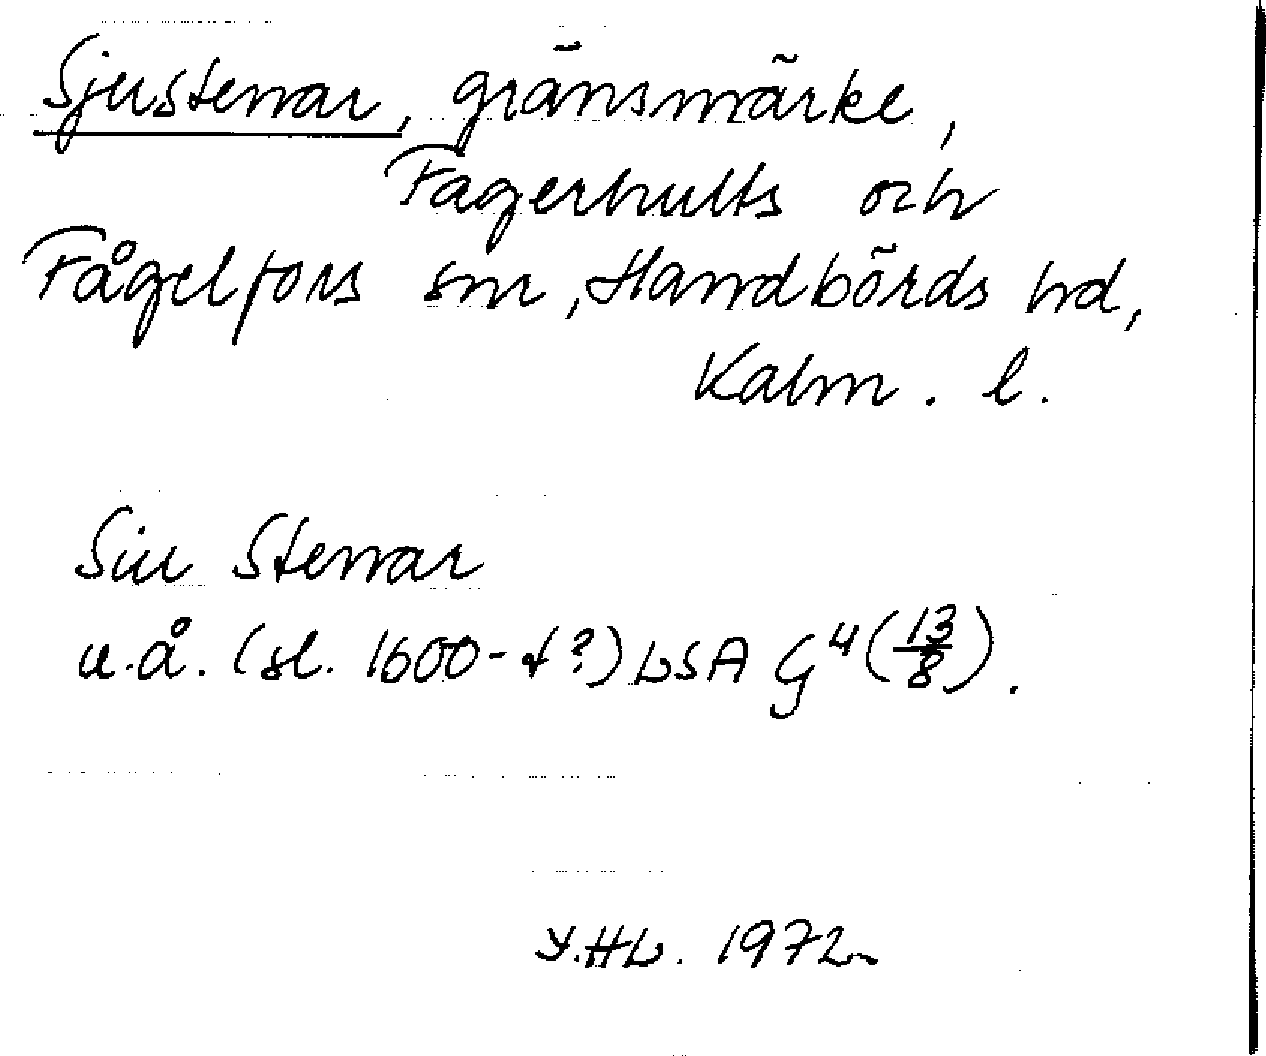 Sjustenar, gränsmärke,
Fagerhults och
Fågelfors snr, Handbörds hd,
Kalm. l.
Siu Stenar
u.å. (sl. 1600-t?) LSA G⁴ (13/8).
Y.HL. 1972